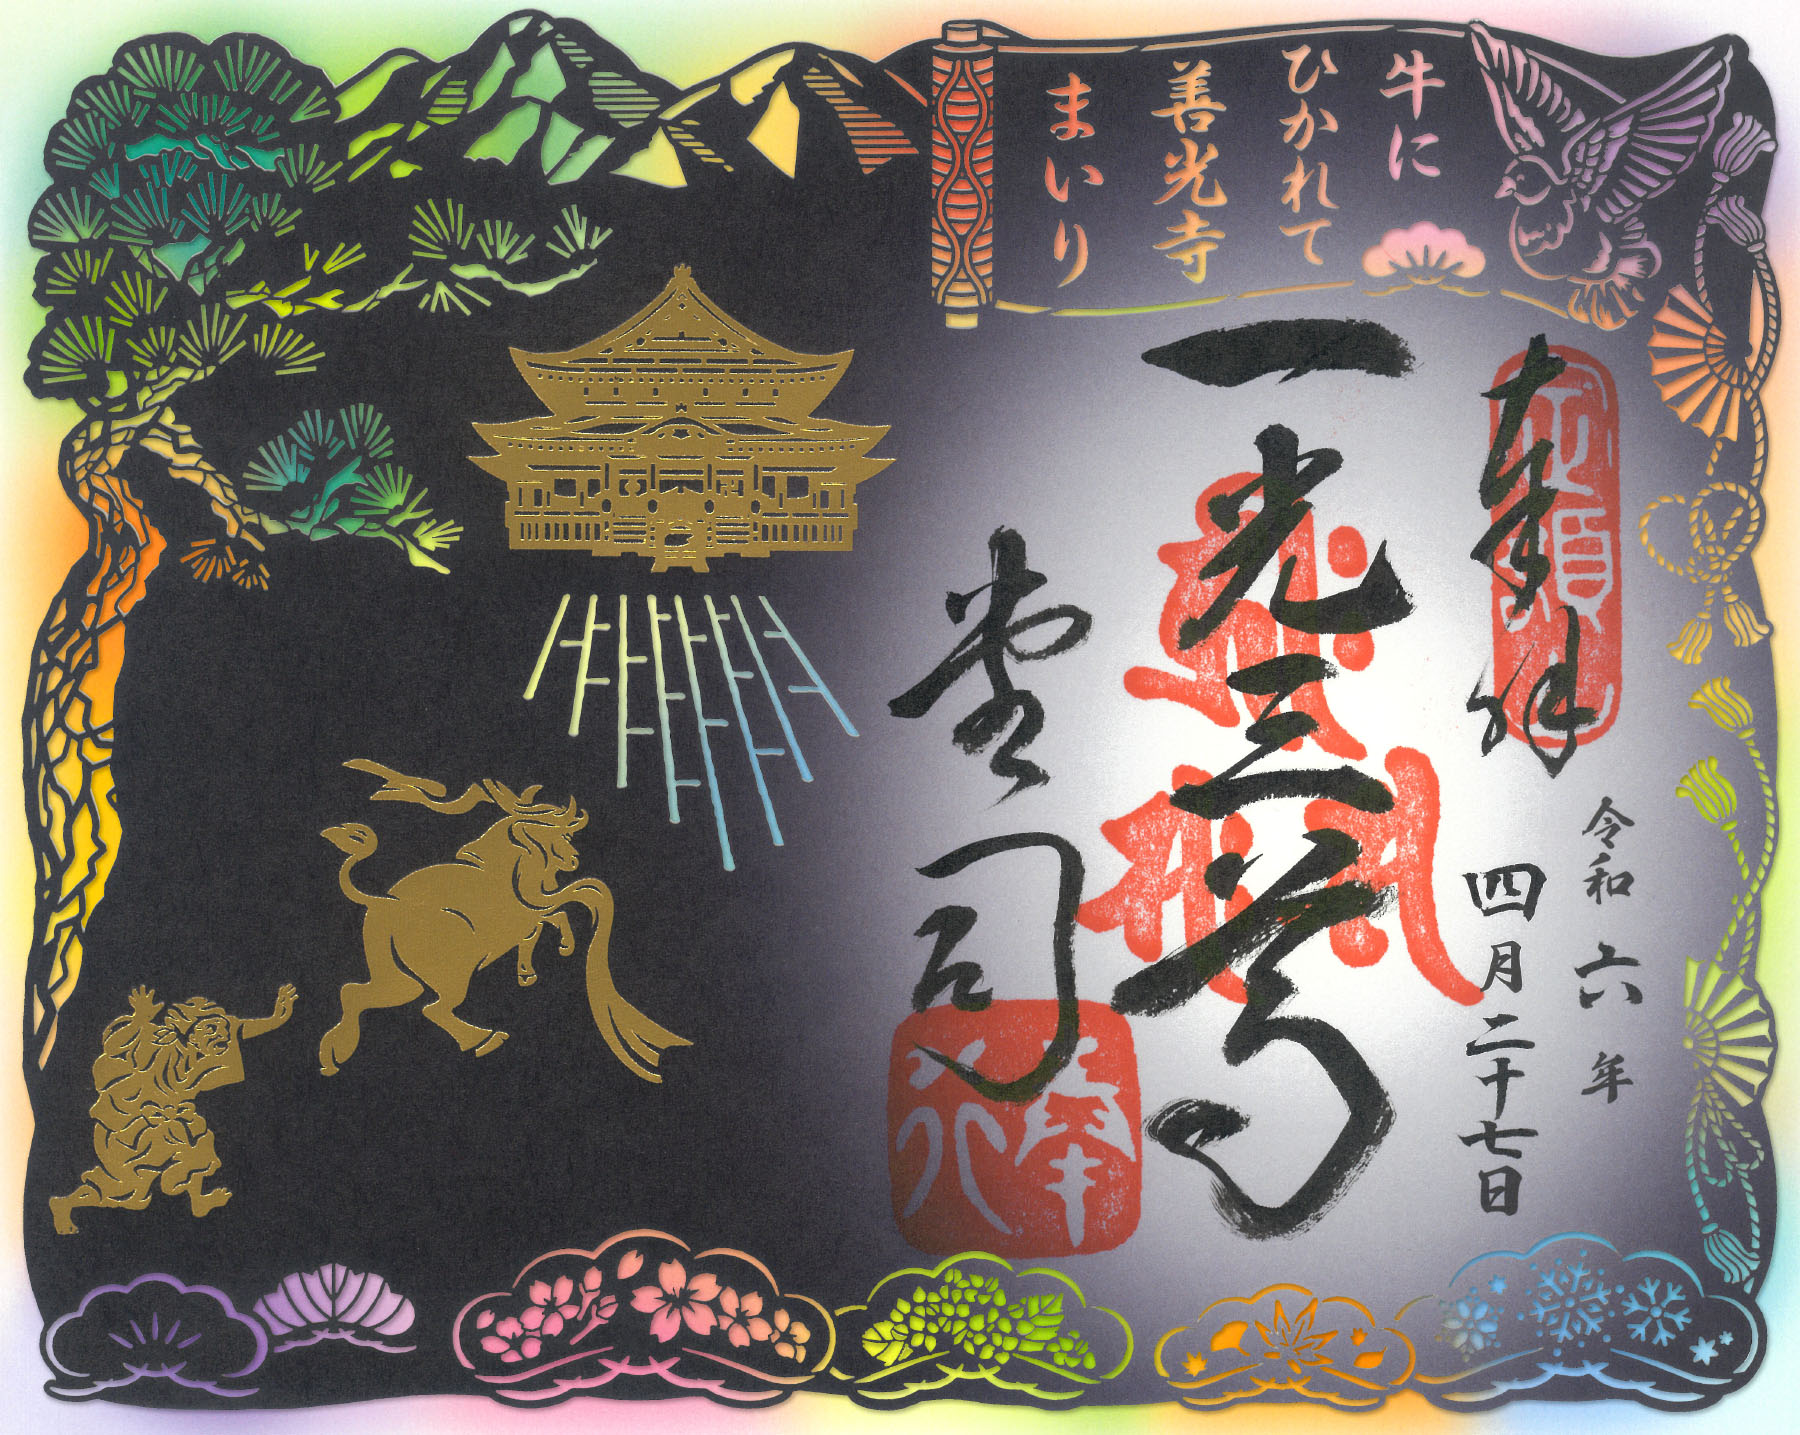 牛に
ひかれて
善光寺
まいり
奉拝
令和六年
四月二十七日
一光三尊
堂司